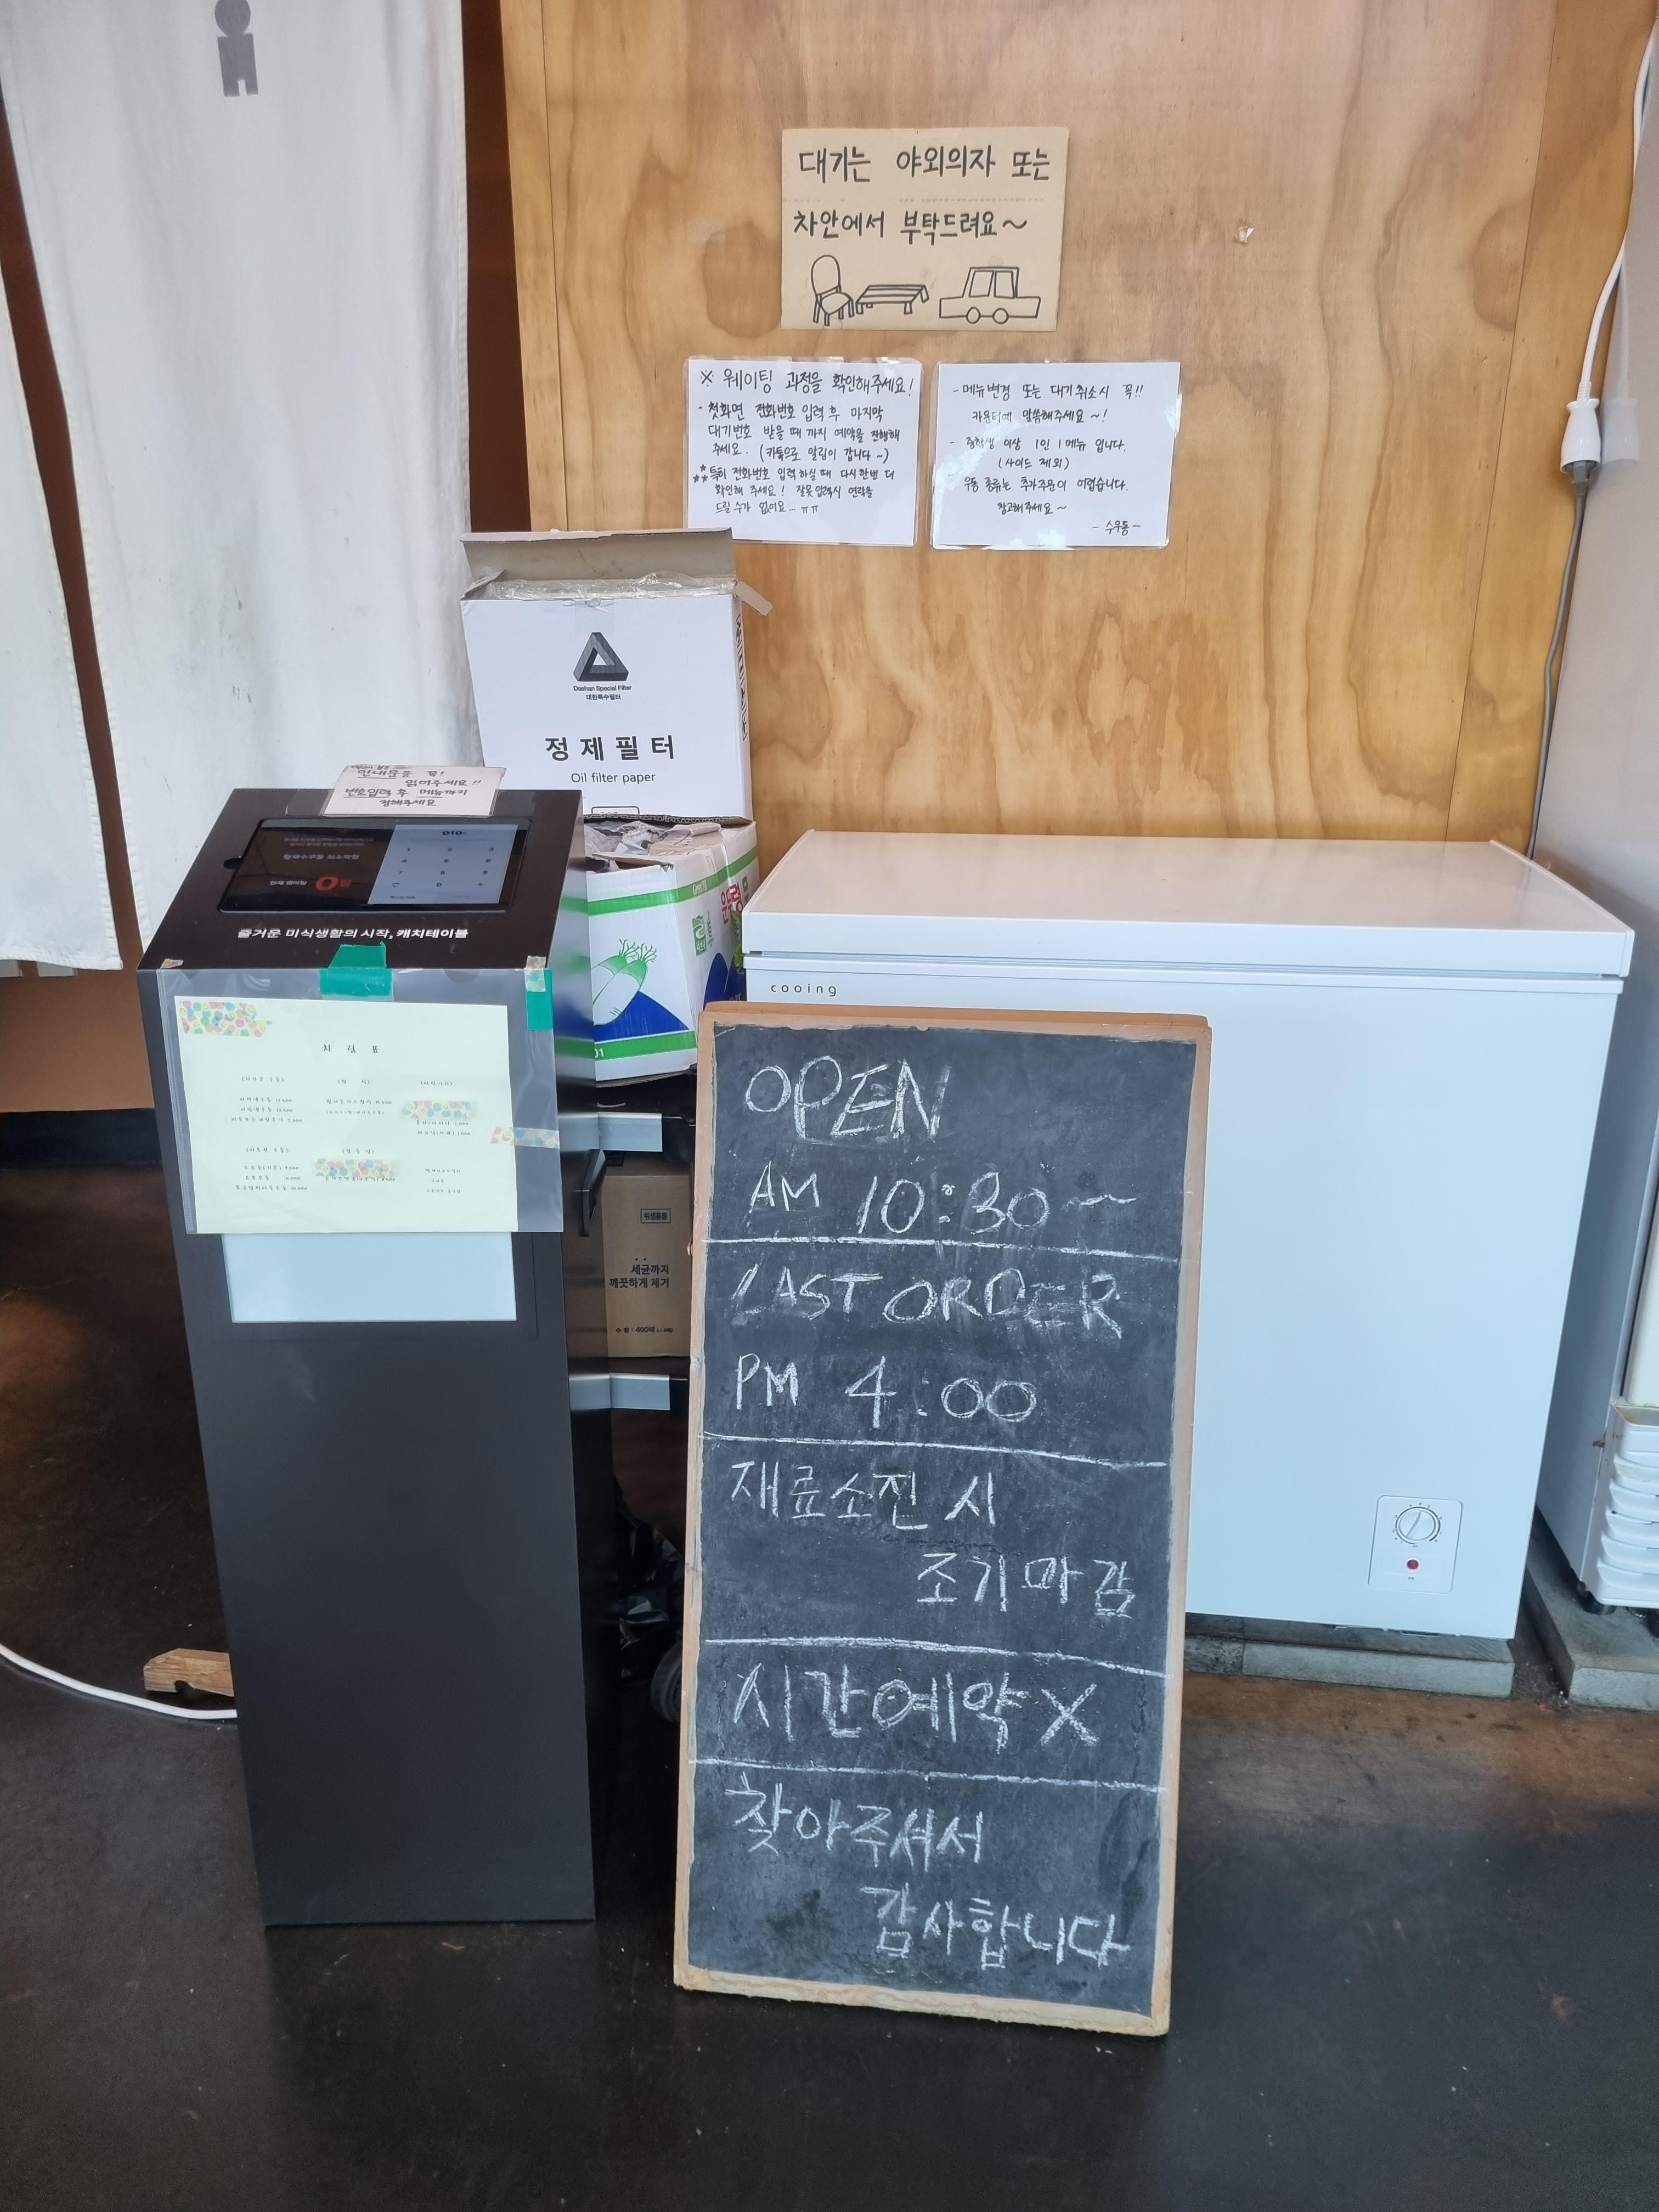 대기는 야외의자 또는
차안에서 부탁드려요~
※ 웨이팅 과정을 확인해주세요!
- 첫화면 전화번호 입력 후 마지막
대기번호 받을 때 까지 예약을 진행해
주세요. (카톡으로 알림이 갑니다~)
특히 전화번호 입력하실 때 다시한번 더
확인해 주세요! 잘못입력시 연락을
드릴수가 없어요... ㅠㅠ
- 메뉴변경 또는 대기취소시 꼭!!
카운터에 말씀해주세요~!
- 중학생 이상 1인 1메뉴 입니다.
(사이드 제외)
- 우동 종류는 추가주문이 어렵습니다.
참고해주세요~
- 수우동 -
Daehan Special Filter
대한특수필터
정제필터
Oil filter paper
안내문을 꼭!
읽어주세요!!
번호입력 후 메뉴까지
정해주세요
010-
현재 웨이팅 0팀
즐거운 미식생활의 시작, 캐치테이블
차림표
cooing
위생용품
세균까지
깨끗하게 제거
OPEN
AM 10:30~
LAST ORDER
PM 4:00
재료소진 시
조기마감
시간예약 X
찾아주셔서
감사합니다